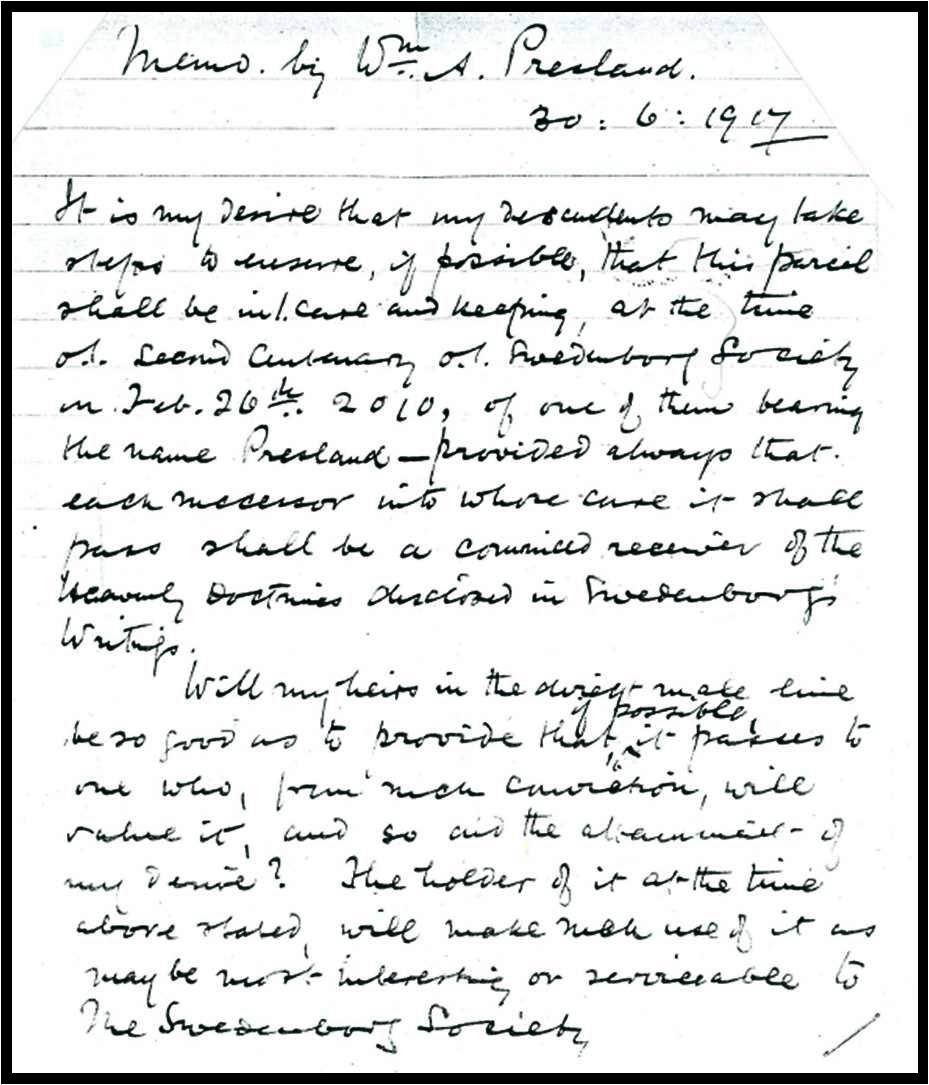 Memo. by Wm. A. Presland.
30 : 6 : 1917
It is my desire that my descendents may take
steps to ensure, if possible, that this parcel
shall be in/. care and keeping, at the time
o.l. Second Centenary o.l. Swedenborg Society
in Feb. 26th. 2010, of one of them bearing
the name Presland — provided always that
each successor into whose care it shall
pass shall be a convinced receiver of the
Heavenly Doctrines disclosed in Swedenborg's
Writings.
Will my heirs in the direct male line
if possible,
be so good as to provide that, it passes to
one who, from such conviction, will
value it, and so aid the attainment of
my desire? The holder of it at the time
above stated, will make such use of it as
may be most interesting or serviceable to
The Swedenborg Society